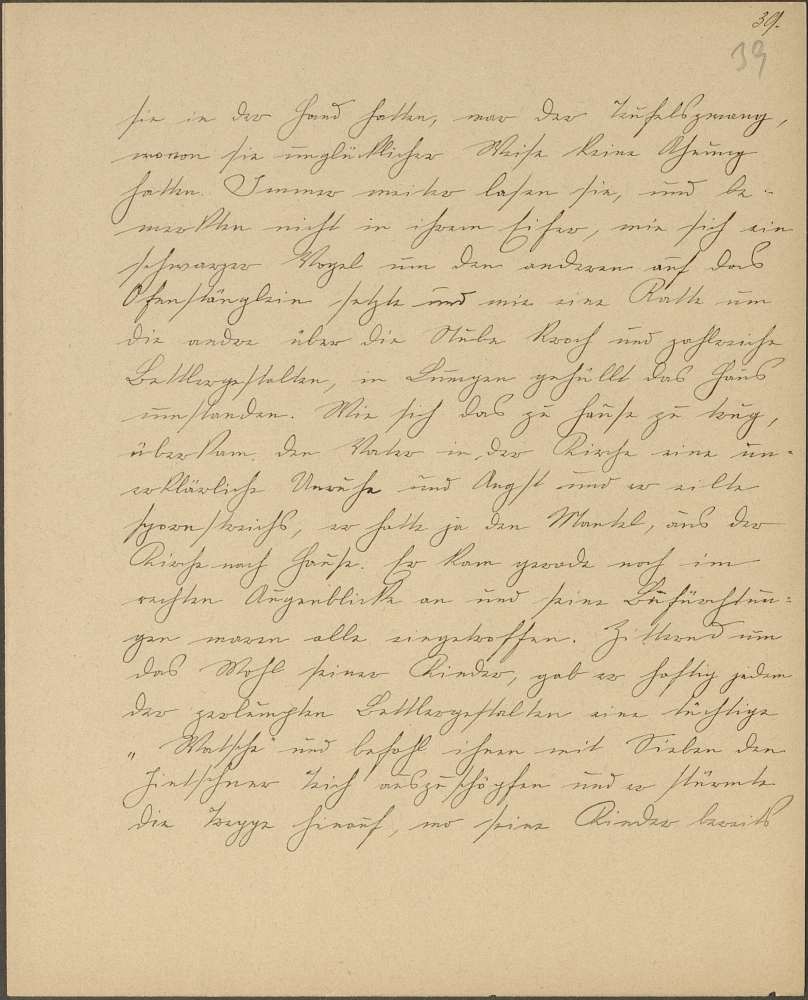 39.
39
sie in der Hand hatten, war der Teufelszwang,
wovon sie unglücklicher Weise keine Ahnung
hatten. Immer weiter lasen sie, und be-
merkten nicht in ihrem Eifer, wie sich ein
schwarzer Vogel um den anderen auf das
Ofenstänglein setzte und wie eine Ratte um
die andre über die Stube kroch und zahlreiche
Bettlergestalten, in Lumpen gehüllt das Haus
umstanden. Wie sich das zu Hause zu trug,
überkam den Vater in der Kirche eine un-
erklärliche Unruhe und Angst und er eilte
spornstreichs, er hatte ja den Mantel, aus der
Kirche nach Hause. Er kam gerade noch im
rechten Augenblicke an und seine Befürchtun-
gen waren alle eingetroffen. Zitternd um
das Wohl seiner Kinder, gab er hastig jedem
der zerlumpten Bettlergestalten eine tüchtige
„Watsche" und befahl ihnen mit Sieben den
Hintschner Teich auszuschöpfen und er stürmte
die Treppe hinauf, wo seine Kinder bereits